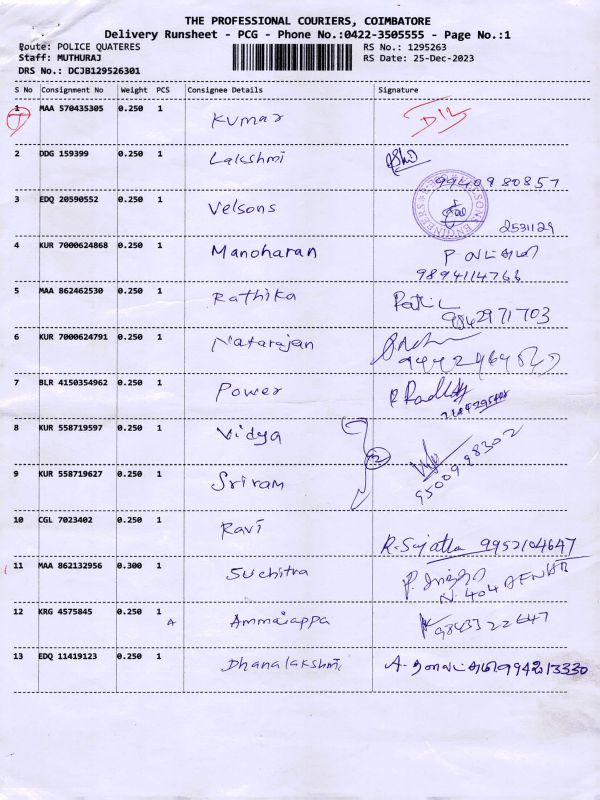 THE PROFESSIONAL COURIERS, COIMBATORE
Delivery Runsheet - PCG - Phone No.:0422-3505555 - Page No.:1
Route: POLICE QUATERES
RS No.: 1295263
Staff: MUTHURAJ
RS Date: 25-Dec-2023
DRS No.: DCJB129526301
S No Consignment No Weight PCS Consignee Details Signature
1 MAA 570435305 0.250 1 Kumar
2 DDG 159399 0.250 1 Lakshmi 9940980857
3 EDQ 20590552 0.250 1 Velsons 2531129
4 KUR 7000624868 0.250 1 Manoharan
9894114766
5 MAA 862462530 0.250 1 Rathika
9842971703
6 KUR 7000624791 0.250 1 Natarajan
7 BLR 4150354962 0.250 1 Power
8 KUR 558719597 0.250 1 Vidya
9500988302
9 KUR 558719627 0.250 1 Sriram
10 CGL 7023402 0.250 1 Ravi R. Sujatha 9952104647
11 MAA 862132956 0.300 1 Suchitra
12 KRG 4575845 0.250 1 A Ammaiappa 9843322647
13 EDQ 11419123 0.250 1 Dhanalakshmi